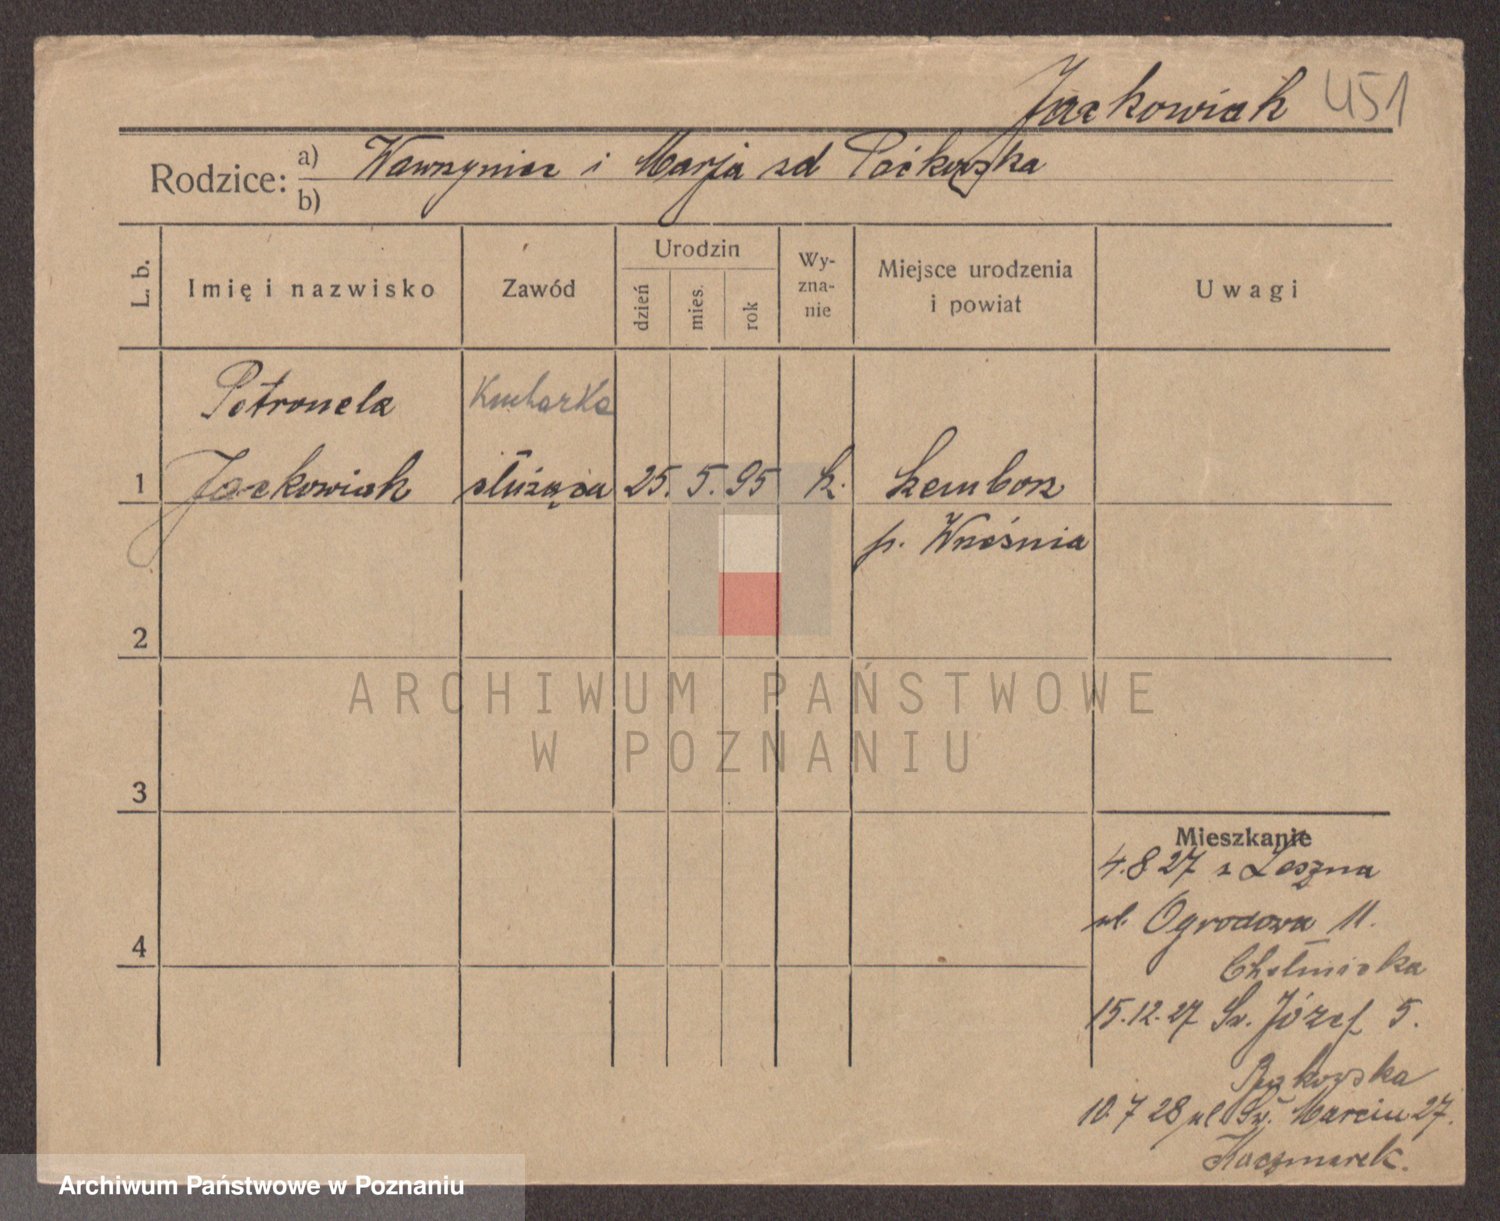 Jackowiak 451
Rodzice: a) Wawrzyniec i Marja zd
b)
L. b.
Imię i nazwisko
Zawód
Urodzin
dzień
mies.
rok
Wy-
zna-
nie
Miejsce urodzenia
i powiat
Uwagi
Petronela
Kucharka
1 Jackowiak służąca 25. 5. 95 k.
p. Września
2
3
4
Mieszkanie
4.8 27 z Leszna
ul. Ogrodowa 11.
Chełmicka
15.12.27 Św. Józef 5.
10.7 28 ul Św. Marcin 27.
Kaczmarek.
ARCHIWUM PAŃSTWOWE
W POZNANIU
Archiwum Państwowe w Poznaniu